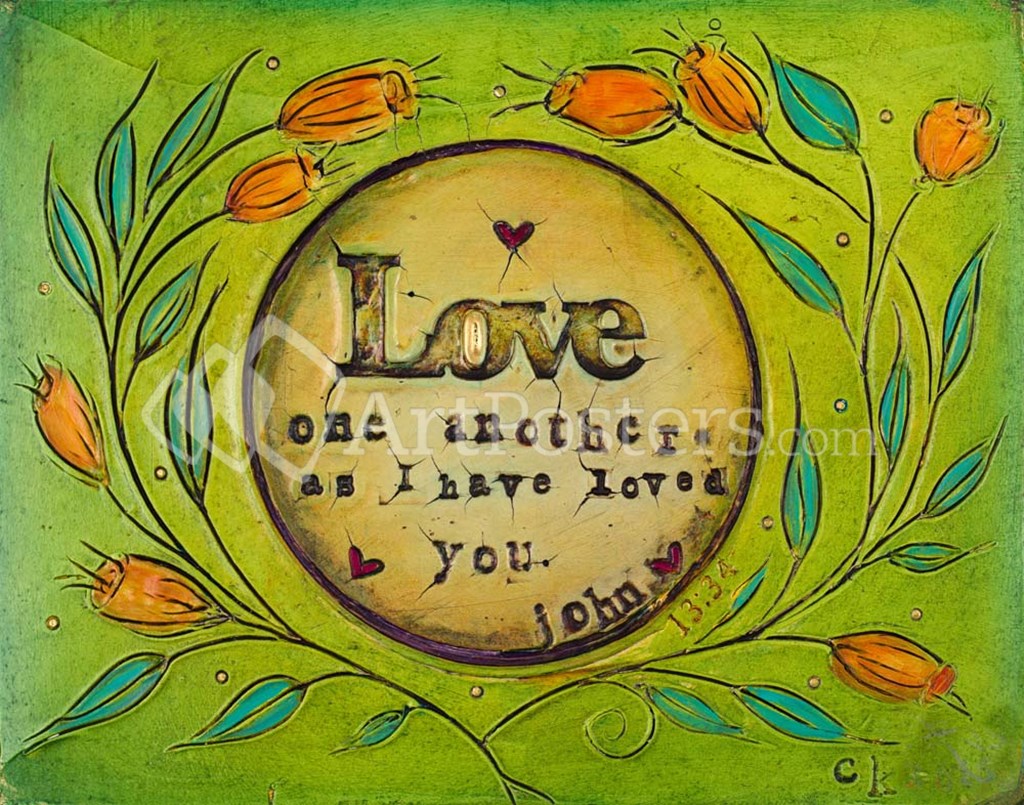 Love
one another.
as I have loved
you.
john.
13:34
ArtPosters.com
ck